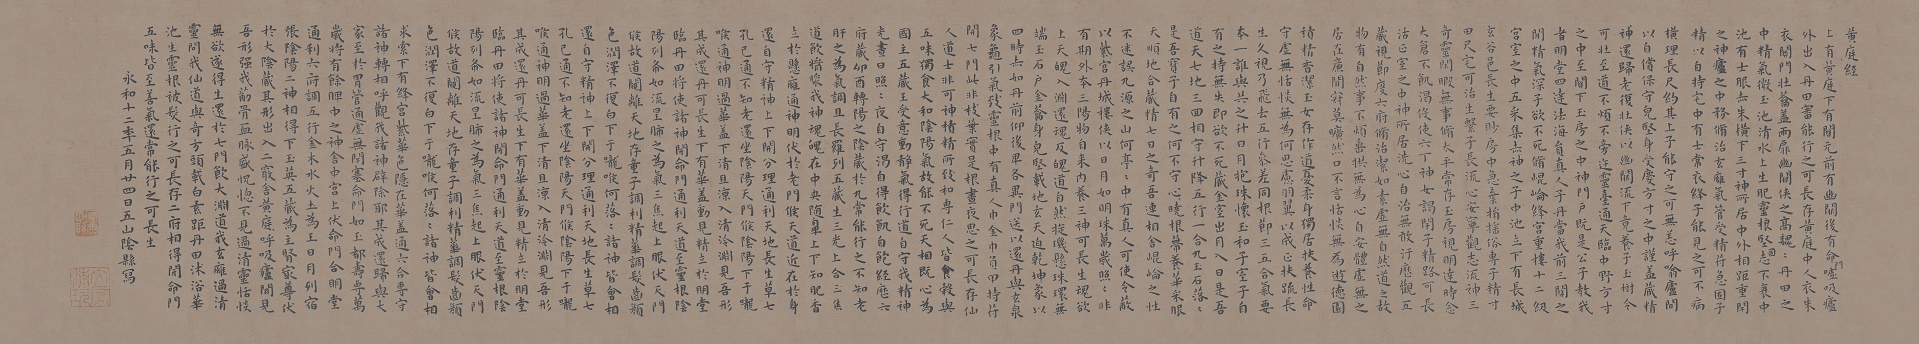 黃庭經
上有黃庭下有關元前有幽闕後有命嘘吸廬
外出入丹田審能行之可長存黃庭中人衣朱
衣關門壯籥蓋兩扉幽闕俠之高魏:丹田之
中精氣微玉池清水上生肥靈根堅志不衰中
池有士服赤朱橫下三寸神所居中外相距重閉
之神廬之中務脩治玄癰氣管受精符急固子
精以自持宅中有士常衣絳子能見之可不病
橫理長尺約其上子能守之可無恙呼噏廬間
以自償保守完堅身受慶方寸之中謹蓋藏精
神還歸老復壯俠以幽闕流下竟養子玉樹令
可壯至道不煩不旁迕靈臺通天臨中野方寸
之中至關下玉房之中神門戶既是公子教我
者明堂四達法海員真人子丹當我前三關之
間精氣深子欲不死脩崐崘絳宮重樓十二級
宮室之中五采集赤神之子中池立下有長城
玄谷邑長生要眇房中急棄捐搖俗專子精寸
田尺宅可治生繫子長流心安寧觀志流神三
奇靈閒暇無事脩太平常存玉房視明達時念
大倉不飢渴役使六丁神女謁閉子精路可長
活正室之中神所居洗心自治無敢汙歷觀五
藏視節度六府脩治潔如素虛無自然道之故
物有自然事不煩垂拱無為心自安體虛無之
居在廉間寂莫曠然口不言恬惔無為遊德園
積精香潔玉女存作道憂柔身獨居扶養性命
守虛無恬惔無為何思慮羽翼以成正扶疏長
生久視乃飛去五行參差同根節三五合氣要
本一誰與共之升日月抱珠懷玉和子室子自
有之持無失即欲不死藏金室出月入日是吾
道天七地三回相守升降五行一合九玉石落:
是吾寶子自有之何不守心曉根蔕養華采服
天順地合藏精七日之奇吾連相舍崐崘之性
不迷誤九源之山何亭:中有真人可使令蔽
以紫宮丹城樓俠以日月如明珠萬歲照:非
有期外本三陽物自來內養三神可長生魂欲
上天魄入淵還魂反魄道自然旋璣懸珠環無
端玉石戶金籥身完堅載地玄天迫乾坤象以
四時赤如丹前仰後卑各異門送以還丹與玄泉
象龜引氣致靈根中有真人巾金巾負甲持符
開七門此非枝葉實是根晝夜思之可長存仙
人道士非可神積精所致和專仁人皆食穀與
五味獨食大和陰陽氣故能不死天相既心為
國主五藏王受意動靜氣得行道自守我精神
光晝日照:夜自守渴自得飲飢自飽經歷六
府藏卯酉轉陽之陰藏於九常能行之不知老
肝之為氣調且長羅列五藏生三光上合三焦
道飲醬漿我神魂魄在中央隨鼻上下知肥香
立於懸癰通神明伏於老門候天道近在於身
還自守精神上下開分理通利天地長生草七
孔已通不知老還坐陰陽天門候陰陽下于嚨
喉通神明過華蓋下清且涼入清泠淵見吾形
其成還丹可長生下有華蓋動見精立於明堂
臨丹田將使諸神開命門通利天道至靈根陰
陽列布如流星肺之為氣三焦起上服伏天門
候故道闚離天地存童子調利精華調髮齒顏
色潤澤不復白下于嚨喉何落:諸神皆會相
還自守精神上下開分理通利天地長生草七
孔已通不知老還坐陰陽天門候陰陽下于嚨
喉通神明過華蓋下清且涼入清泠淵見吾形
其成還丹可長生下有華蓋動見精立於明堂
臨丹田將使諸神開命門通利天道至靈根陰
陽列布如流星肺之為氣三焦起上服伏天門
候故道闚離天地存童子調利精華調髮齒顏
色潤澤不復白下于嚨喉何落:諸神皆會相
求索下有絳宮紫華色隱在華蓋通六合專守
諸神轉相呼觀我諸神辟除耶其成還歸與大
家至於胃管通虛無閉塞命門如玉都壽專萬
歲將有餘脾中之神舍中宮上伏命門合明堂
通利六府調五行金木水火土為王日月列宿
張陰陽二神相得下玉英五藏為主腎最尊伏
於大陰藏其形出入二竅舍黃庭呼吸廬間見
吾形強我筋骨血脉盛怳惚不見過清靈恬惔
無欲遂得生還於七門飲大淵道我玄癰過清
靈問我仙道與奇方頭載白素距丹田沐浴華
池生靈根被髮行之可長存二府相得開命門
五味皆至善氣還常能行之可長生
永和十二年五月廿四日五山陰縣寫